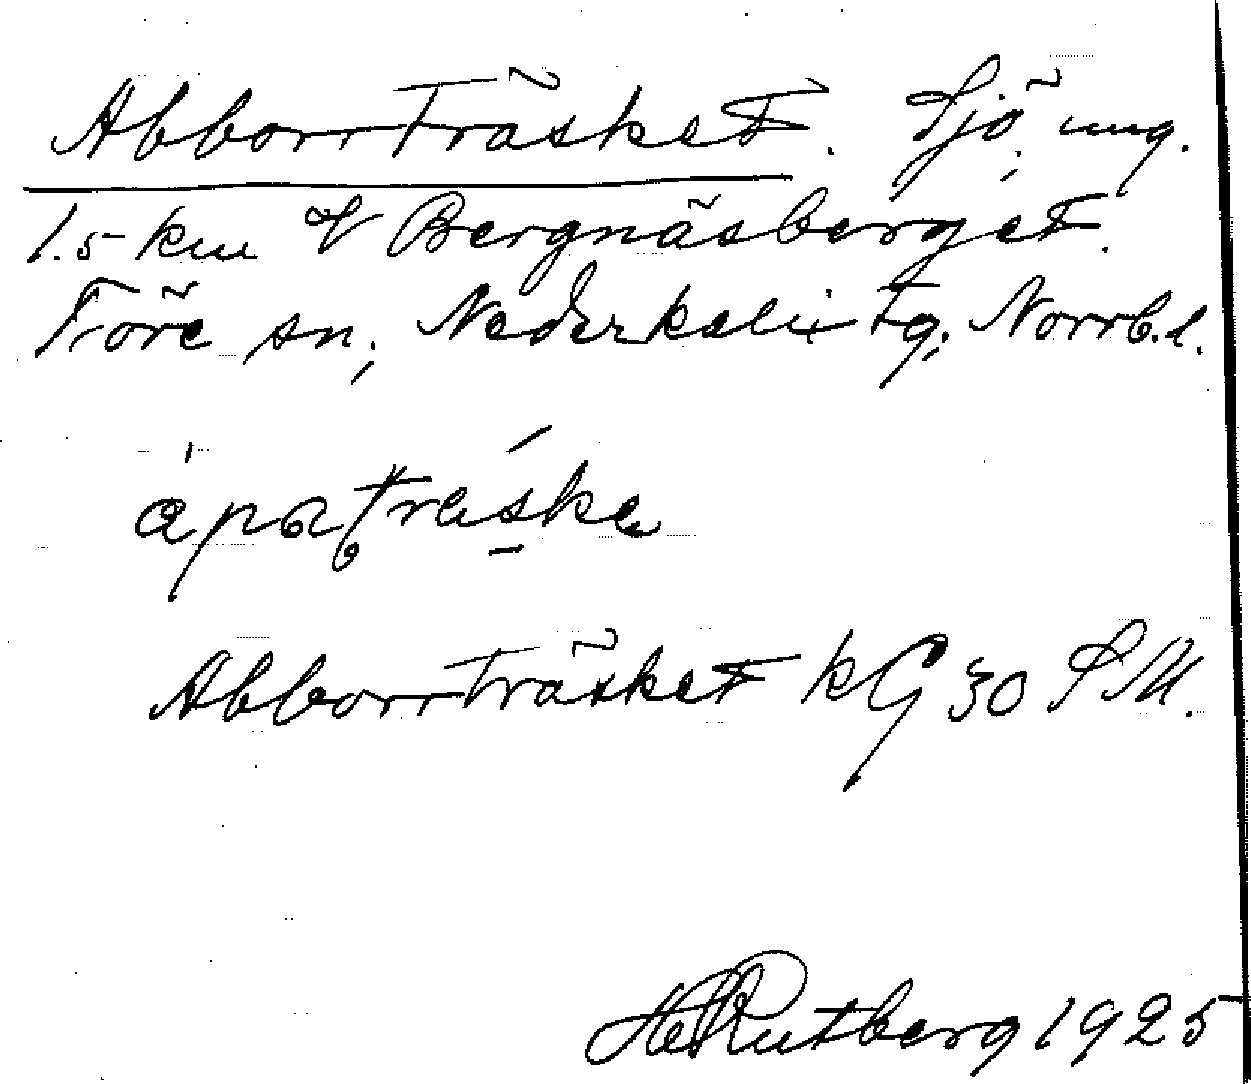 Abborrträsket. Sjö, ung.
1.5 km V Bergnäsberget.
Töre sn, Nederkalix tg, Norrb. l.
Abborrträsket kG 30 S M.
H Rutberg 1925